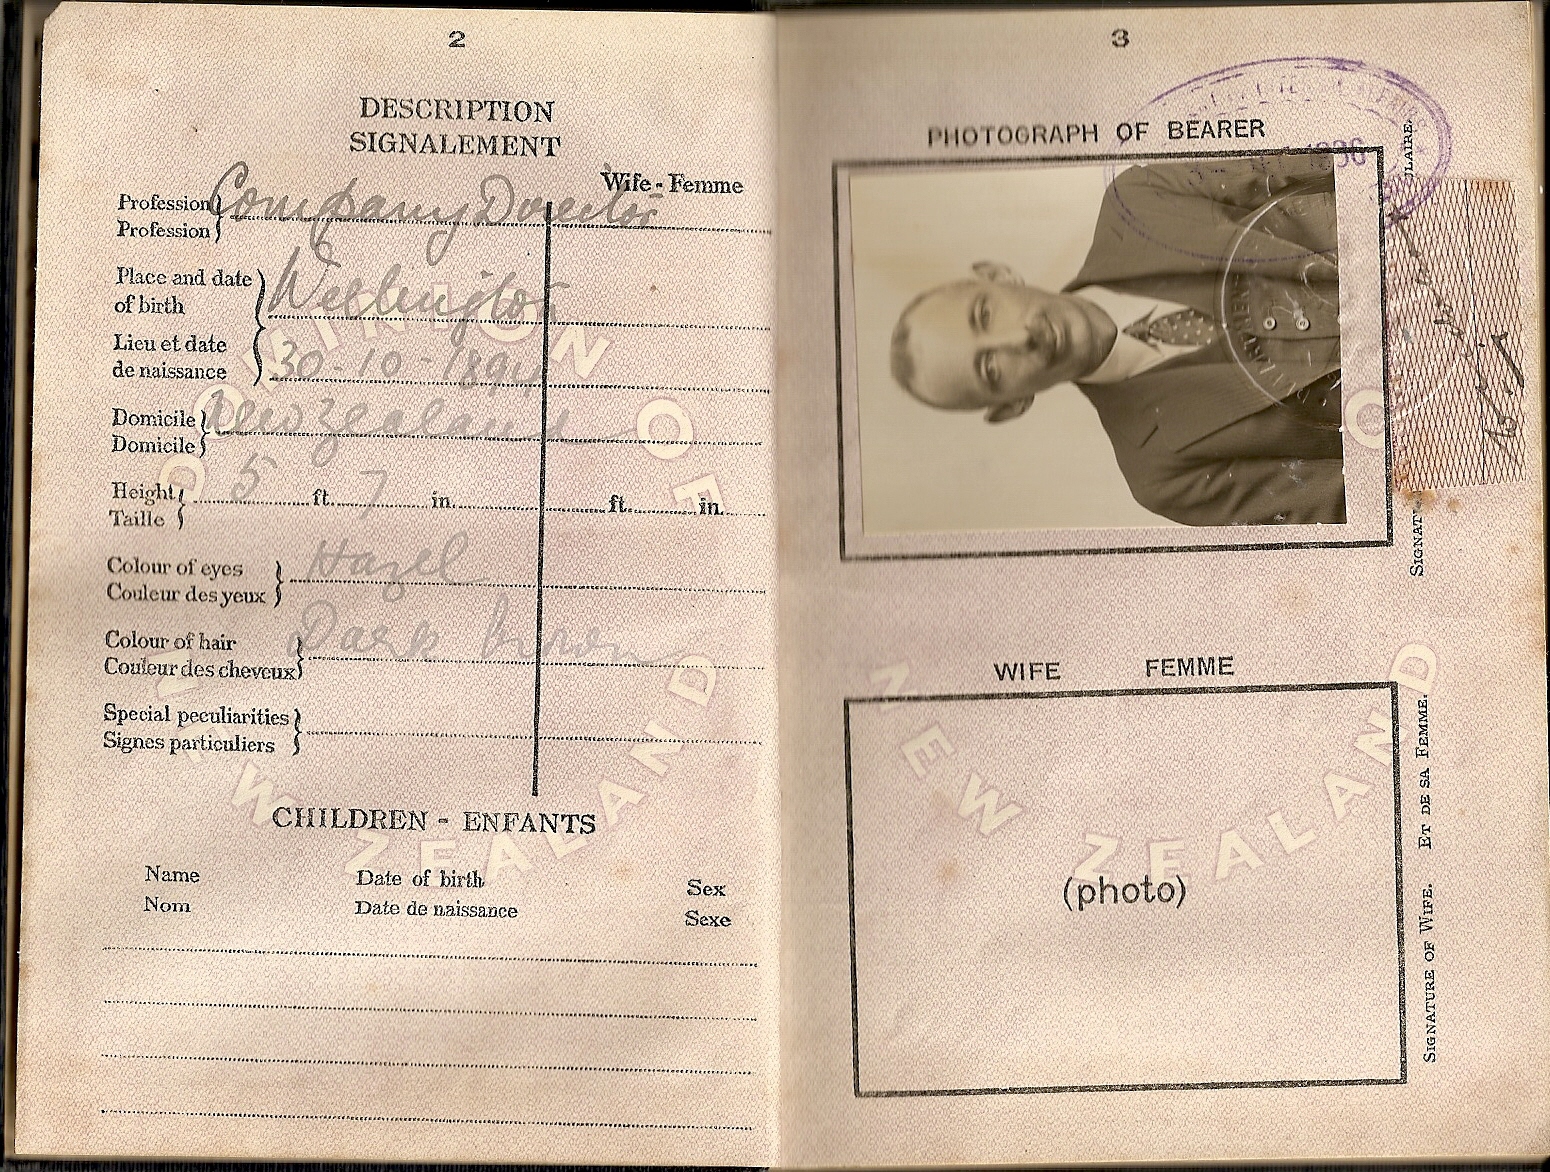 2
DESCRIPTION
SIGNALEMENT
Wife - Femme
Profession Company Director
Profession
Place and date
of birth Wellington
Lieu et date
de naissance 30-10-1894
Domicile New Zealand
Domicile
Height 5 ft. 7 in. ft. in.
Taille
Colour of eyes Hazel
Couleur des yeux
Colour of hair Dark brown
Couleur des cheveux
Special peculiarities
Signes particuliers
CHILDREN - ENFANTS
Name Date of birth Sex
Nom Date de naissance Sexe
DOMINION OF
NEW ZEALAND
3
PHOTOGRAPH OF BEARER
1936
WIFE FEMME
(photo)
NEW ZEALAND
SIGNATURE OF WIFE. ET DE SA FEMME.